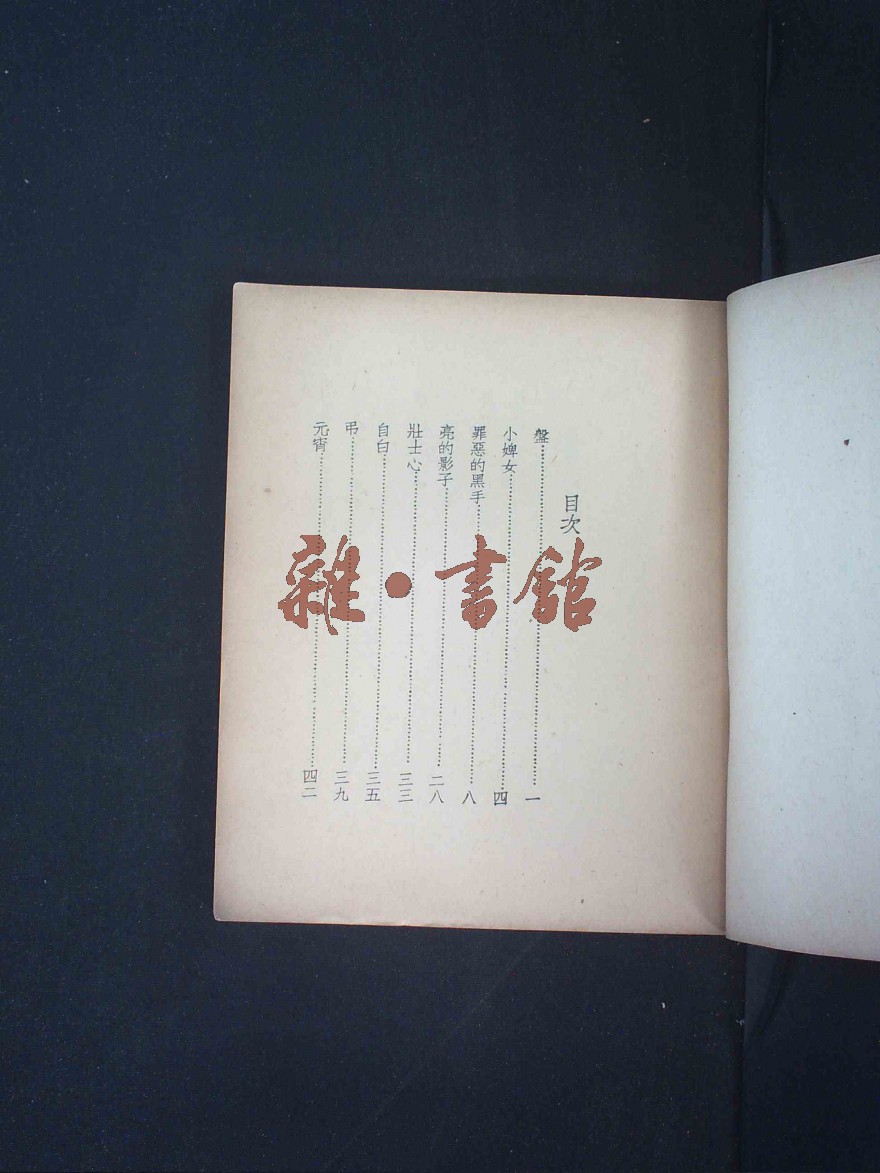 目次
盤⋯⋯一
小婢女⋯⋯四
罪惡的黑手⋯⋯八
亮的影子⋯⋯二八
壯士心⋯⋯三三
自白⋯⋯三五
弔⋯⋯三九
元宵⋯⋯四二
雜·書館